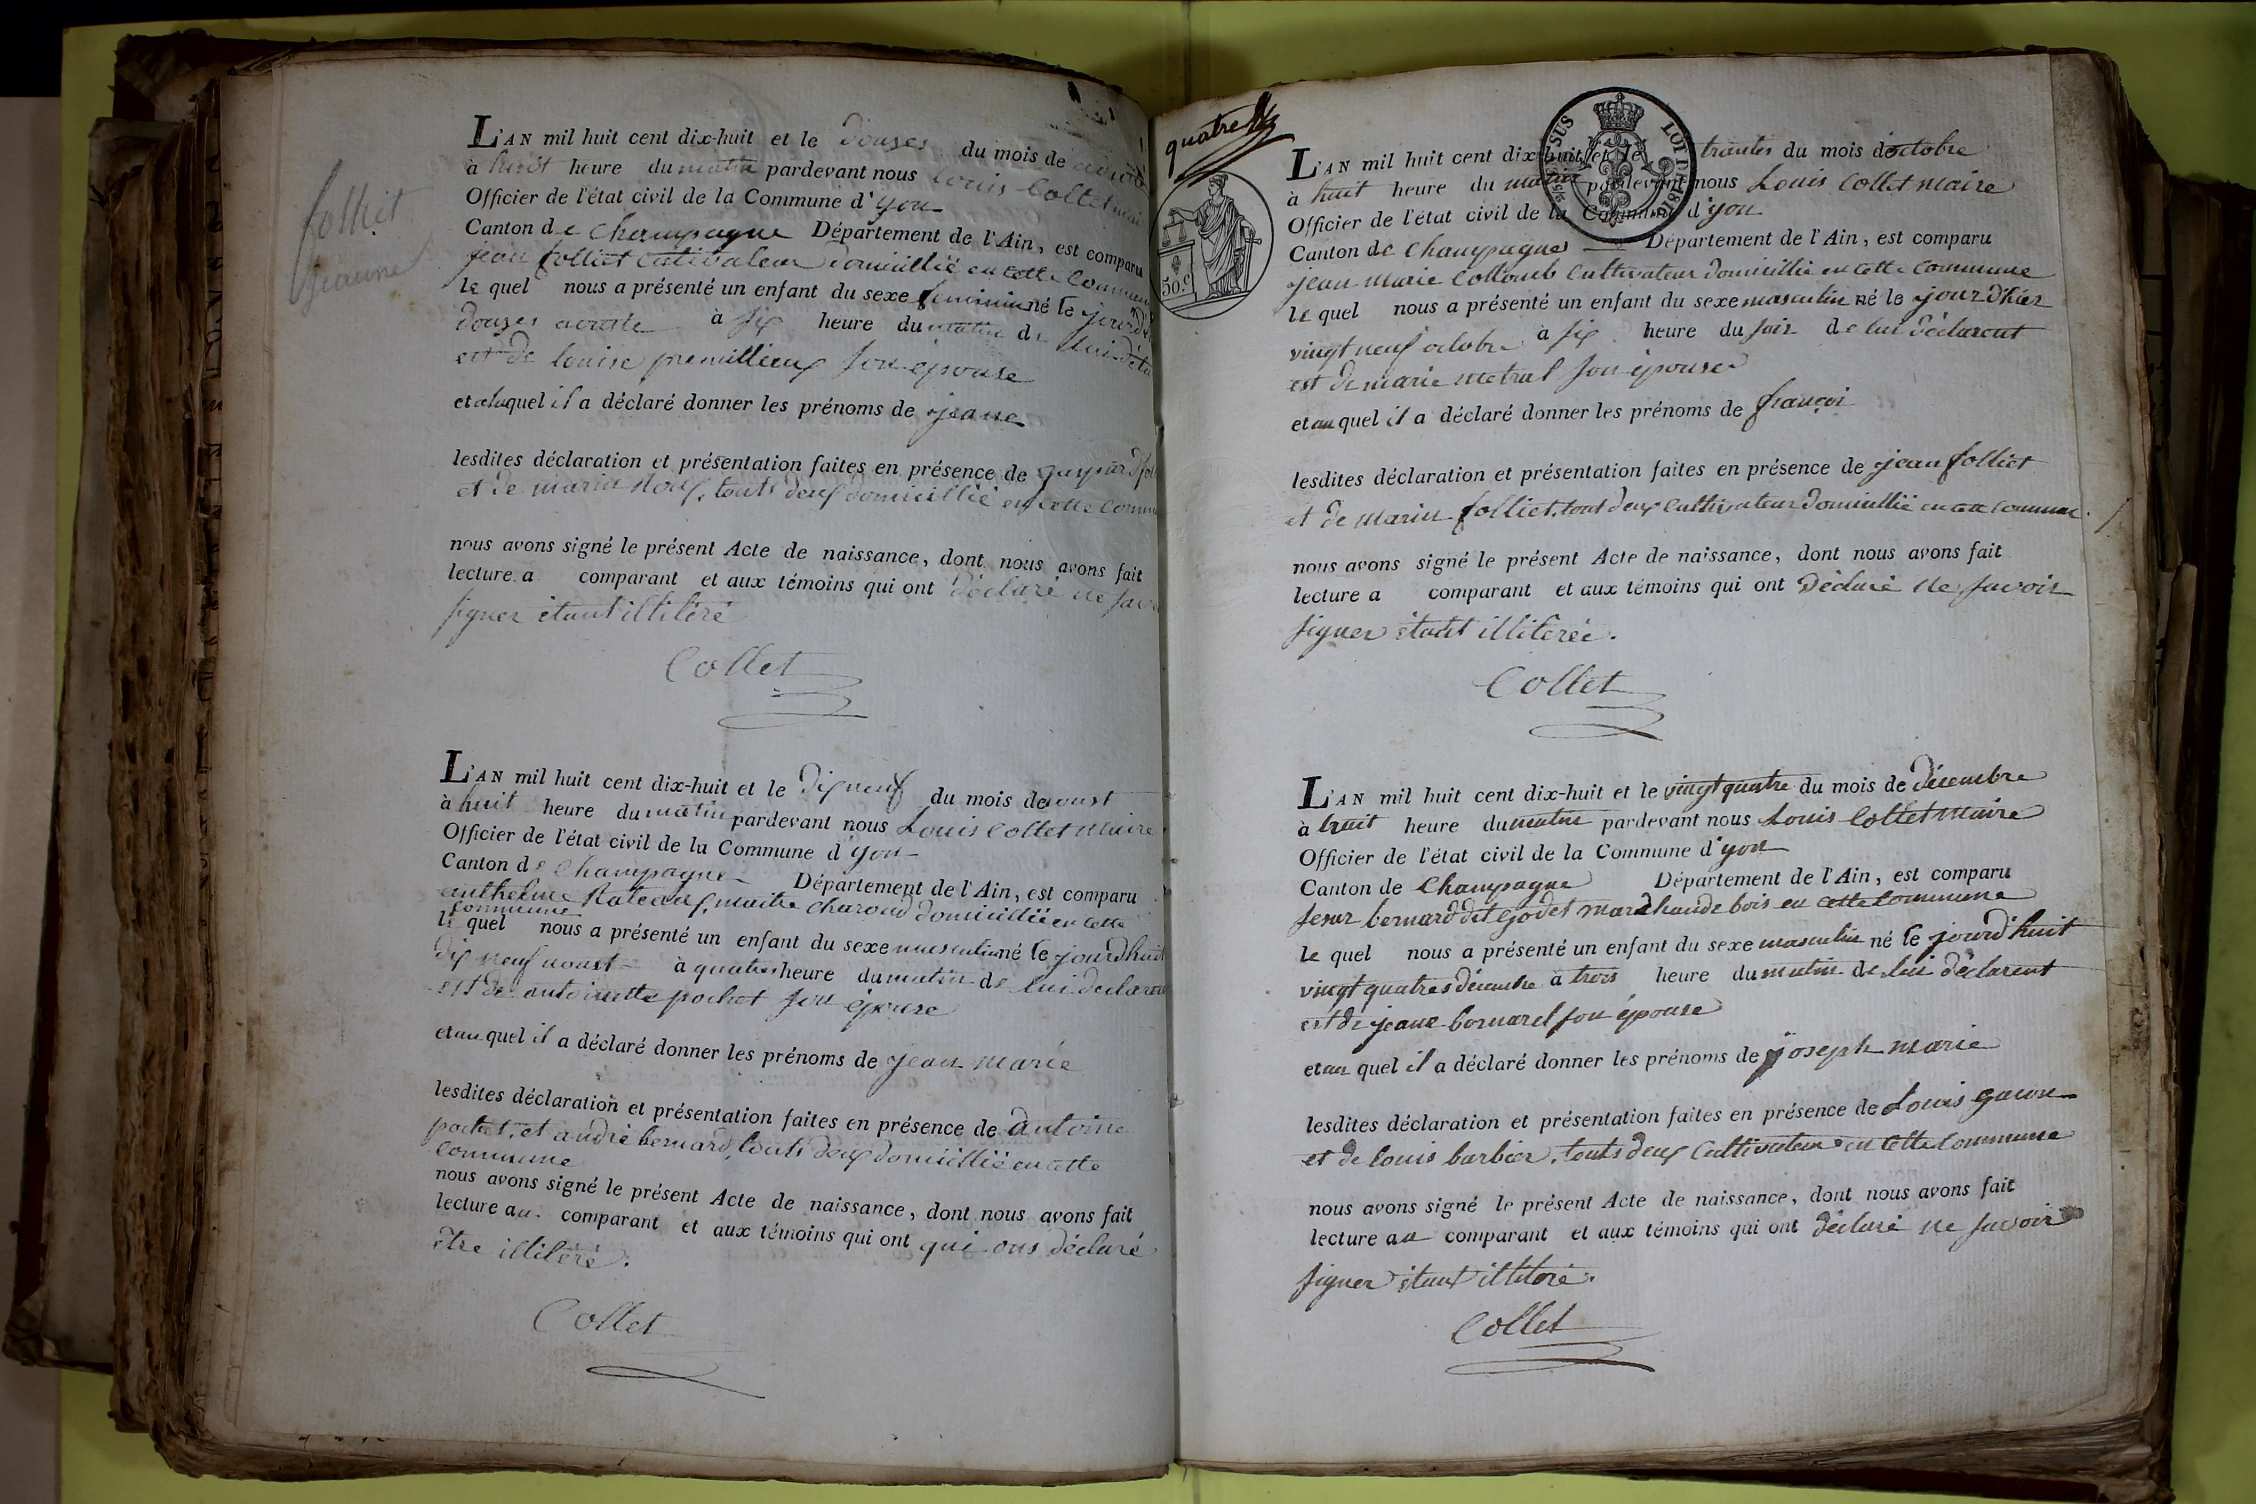 folliet
jeanne
L'AN mil huit cent dix-huit et le douzes du mois de
à huit heure du matin pardevant nous Louis Collet mai
Officier de l'état civil de la Commune d'yon
Canton de Champagne Département de l'Ain, est comparu
jean folliet Cultivateur domicillié en cette Commun
le quel nous a présenté un enfant du sexe feminin né le jourd
douzes aouste à six heure du matin de lui décla
est de louise premillieux son épouse
et alaquel il a déclaré donner les prénoms de jeanne
lesdites déclaration et présentation faites en présence de gaspard fol
et de marin touts deux domicillié en cette commu
nous avons signé le présent Acte de naissance, dont nous avons fait
lecture a comparant et aux témoins qui ont déclaré ne savo
signer étant illiléré
Collet
L'AN mil huit cent dix-huit et le dix neuf du mois de aoust
à huit heure du matin pardevant nous Louis Collet Maire
Officier de l'état civil de la Commune d'yon
Canton de Champagne Département de l'Ain, est comparu
anthelme Rateaux, maitre charond domicillié en cette
commune
le quel nous a présenté un enfant du sexe masculin né le jourdhuit
dix neuf aoust à quatres heure du matin de lui declarent
est de antoinette pochet son épouse
et au quel il a déclaré donner les prénoms de jean marie
lesdites déclaration et présentation faites en présence de antoine
pochet, et andré bernard, touts deux domicillié en cette
commune
nous avons signé le présent Acte de naissance, dont nous avons fait
lecture au comparant et aux témoins qui ont qui ons déclaré
être illiléré.
Collet
quatre
50.c
L'AN mil huit cent dix-huit et le trantes du mois d'octobre
à huit heure du matin pardevant nous Louis Collet maire
Officier de l'état civil de la Commune d'yon
Canton de Champagne Département de l'Ain, est comparu
jean marie Collomb Cultivateur domicillié en cette commune
le quel nous a présenté un enfant du sexe masculin né le jour d'hier
vingt neuf octobre à six heure du soir de lui déclarent
est de marie metral son épouse
et au quel il a déclaré donner les prénoms de françoi
lesdites déclaration et présentation faites en présence de jean folliet
et de marin folliet, tout deux Cultivateur domicillié en cette commune.
nous avons signé le présent Acte de naissance, dont nous avons fait
lecture a comparant et aux témoins qui ont déclaré ne savoir
signer étant illilérée.
Collet
L'AN mil huit cent dix-huit et le vingt quatre du mois de décembre
à huit heure du matin pardevant nous Louis Collet maire
Officier de l'état civil de la Commune d'yon
Canton de Champagne Département de l'Ain, est comparu
bernard dit godet marchande bois en cette commune
le quel nous a présenté un enfant du sexe masculin né le jourd'huit
vingt quatres décembre à trois heure du matin de lui déclarent
est de jeane bornarel son épouse
et au quel il a déclaré donner les prénoms de joseph marie
lesdites déclaration et présentation faites en présence de Louis
et de louis barbier, touts deux Cultivateur en cette Commune
nous avons signé le présent Acte de naissance, dont nous avons fait
lecture au comparant et aux témoins qui ont déclaré ne savoir
signer étant illiléré.
Collet